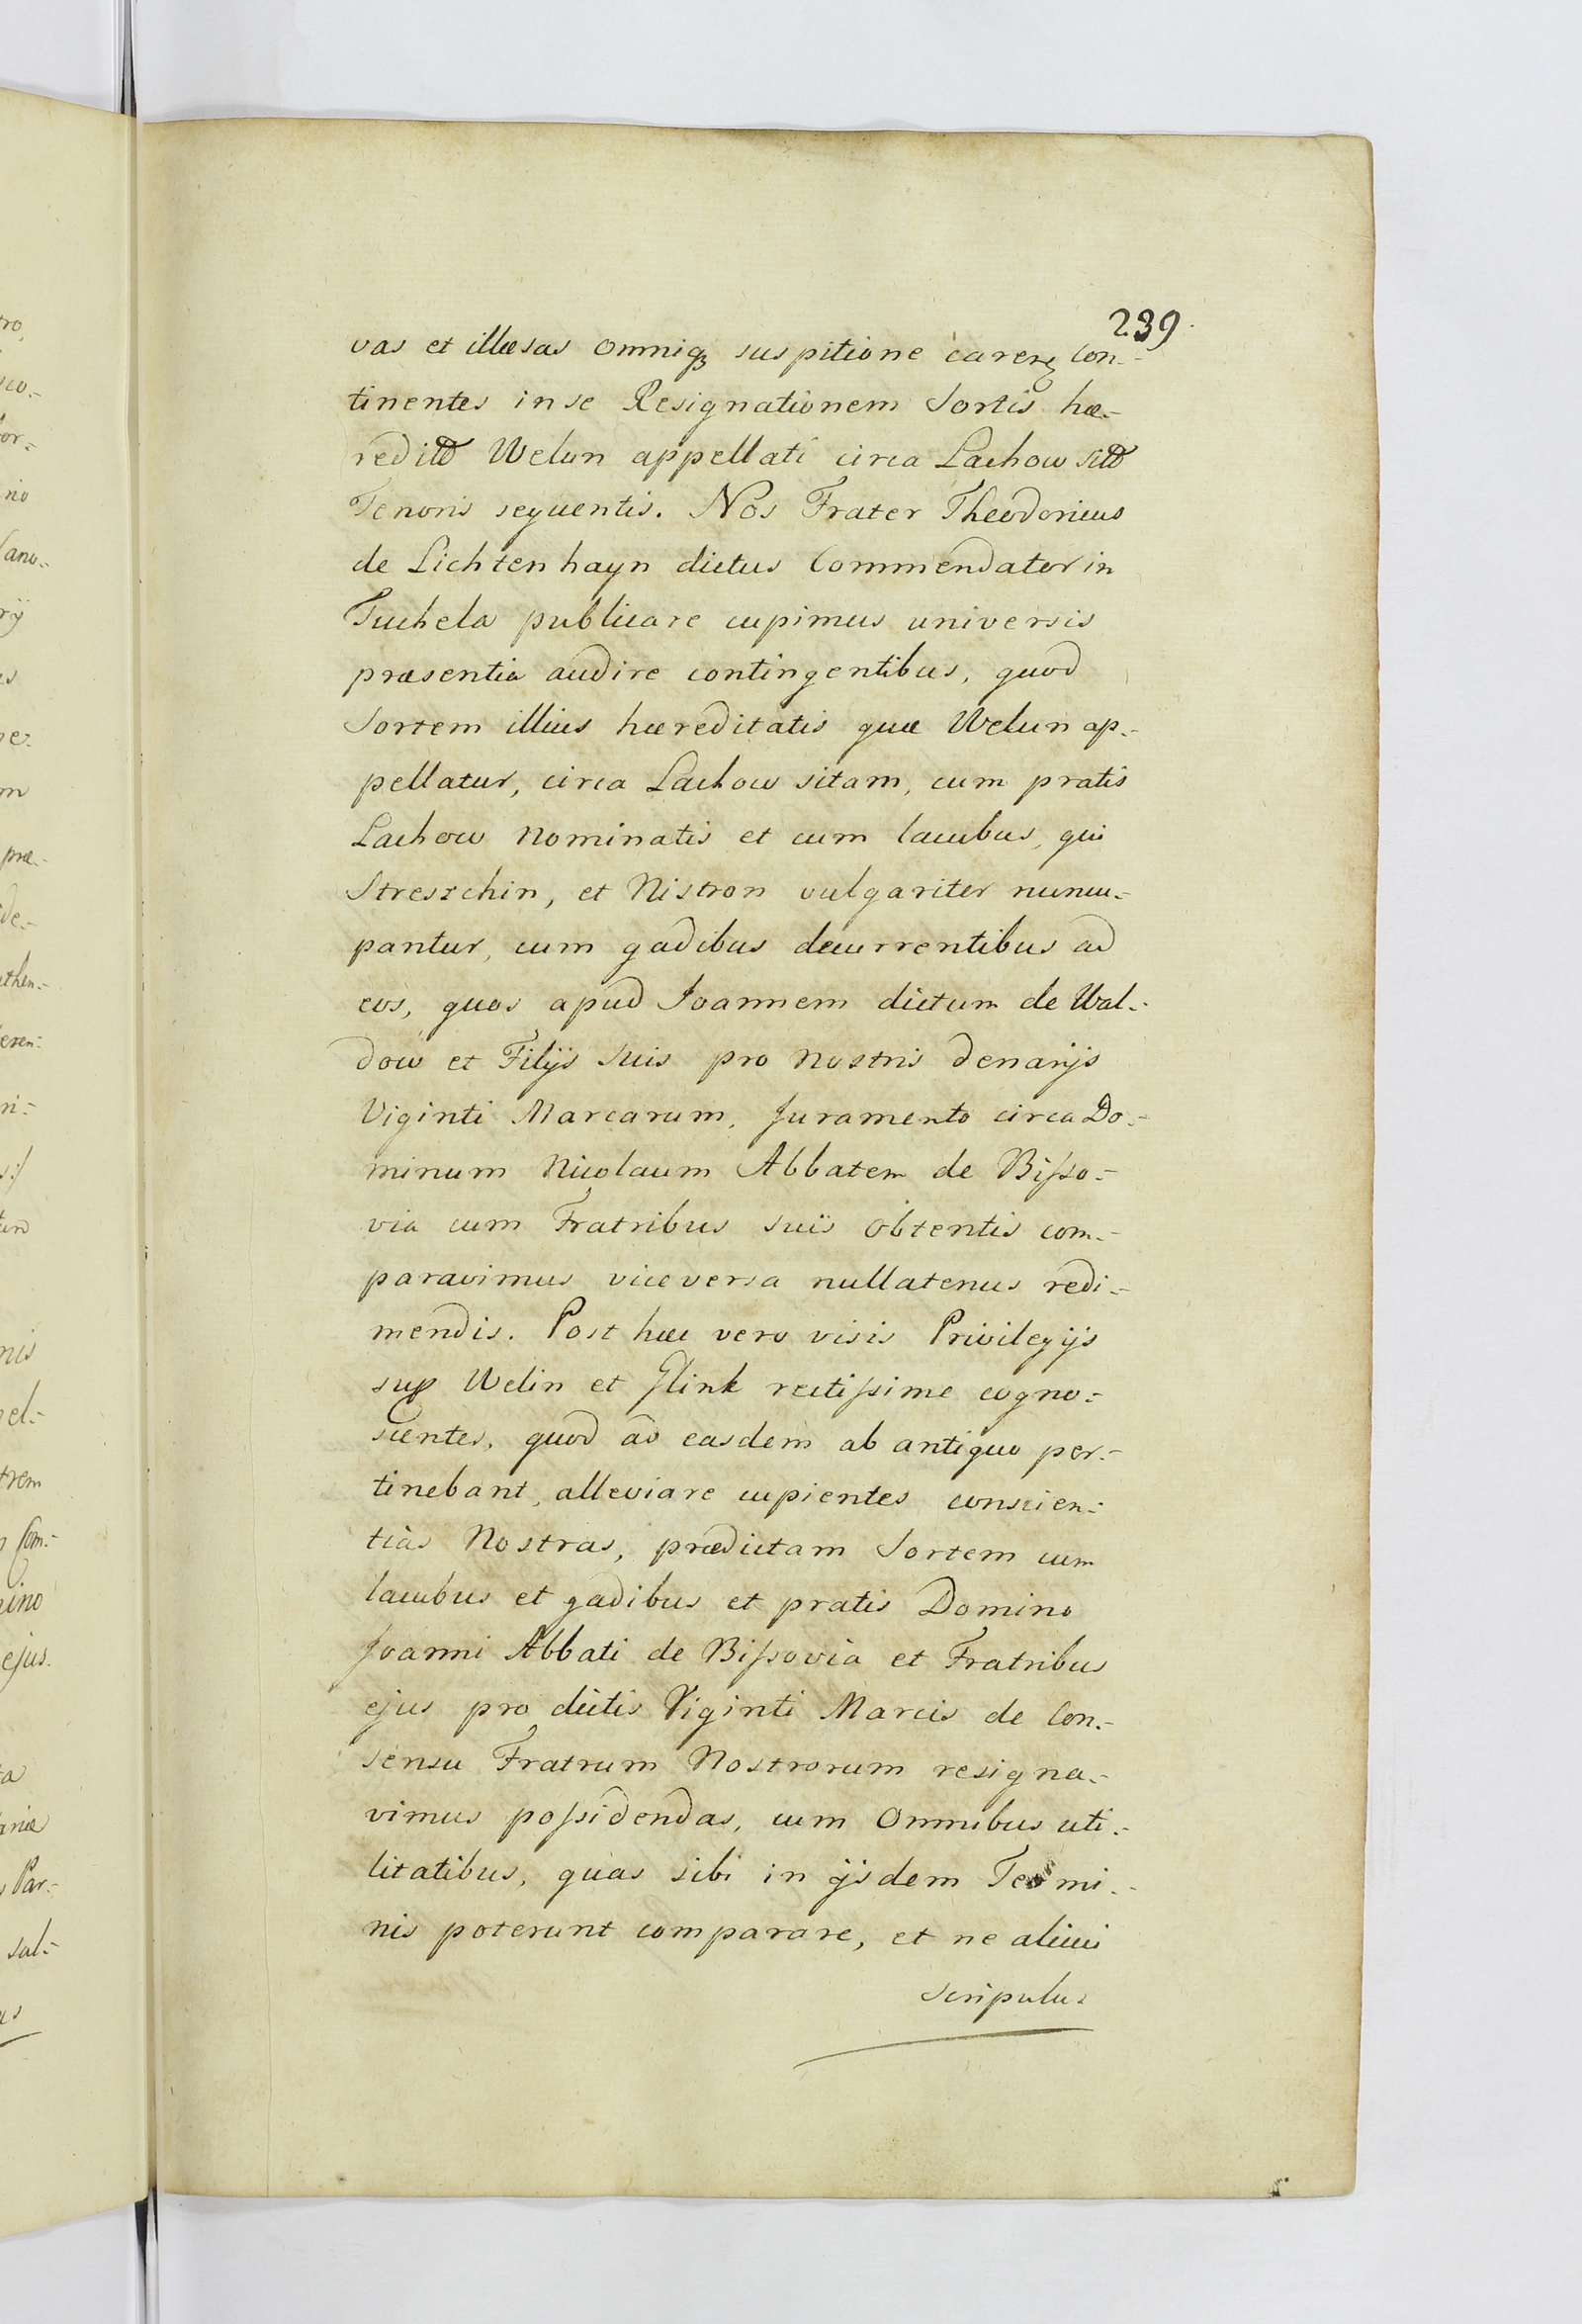 239.
vas et illæsas omniqꝫ suspitione careñ Con-
tinentes in se Resignationem Sortis hæ-
reditt Welun appellati circa Lachow sitt
Tenoris sequentis. Nos Frater Theodoricus
de Lichtenhayn dictus Commendator in
Tuchela publicare cupimus universis
præsentia audire contingentibus, quod
Sortem illius hæreditatis quæ Welun ap-
pellatur, circa Lachow sitam, cum pratis
Lachow nominatis et cum lacubus, qui
Streszchin, et Nistron vulgariter nuncu-
pantur, cum gadibus decurrentibus ad
eos, quos apud Joannem dictum de Wal-
dow et Filijs suis pro nostris denarijs
Viginti Marcarum, Juramento circa Do-
minum Nicolaum Abbatem de Bisso-
via cum Fratribus suis obtentis com-
paravimus vice versa nullatenus redi-
mendis. Post hæc vero visis Privilegijs
sup Welin et Glink rectissime cogno-
scentes, quod ad easdem ab antiquo per-
tinebant, alleviare cupientes conscien-
tias Nostras, prædictam Sortem cum
lacubus et gadibus et pratis Domino
Joanni Abbati de Bissovia et Fratribus
ejus pro dictis Viginti Marcis de Con-
sensu Fratrum Nostrorum resigna-
vimus possidendas, cum omnibus uti-
litatibus, quas sibi in ijsdem Termi-
nis poterunt comparare, et ne alicui
scripulus